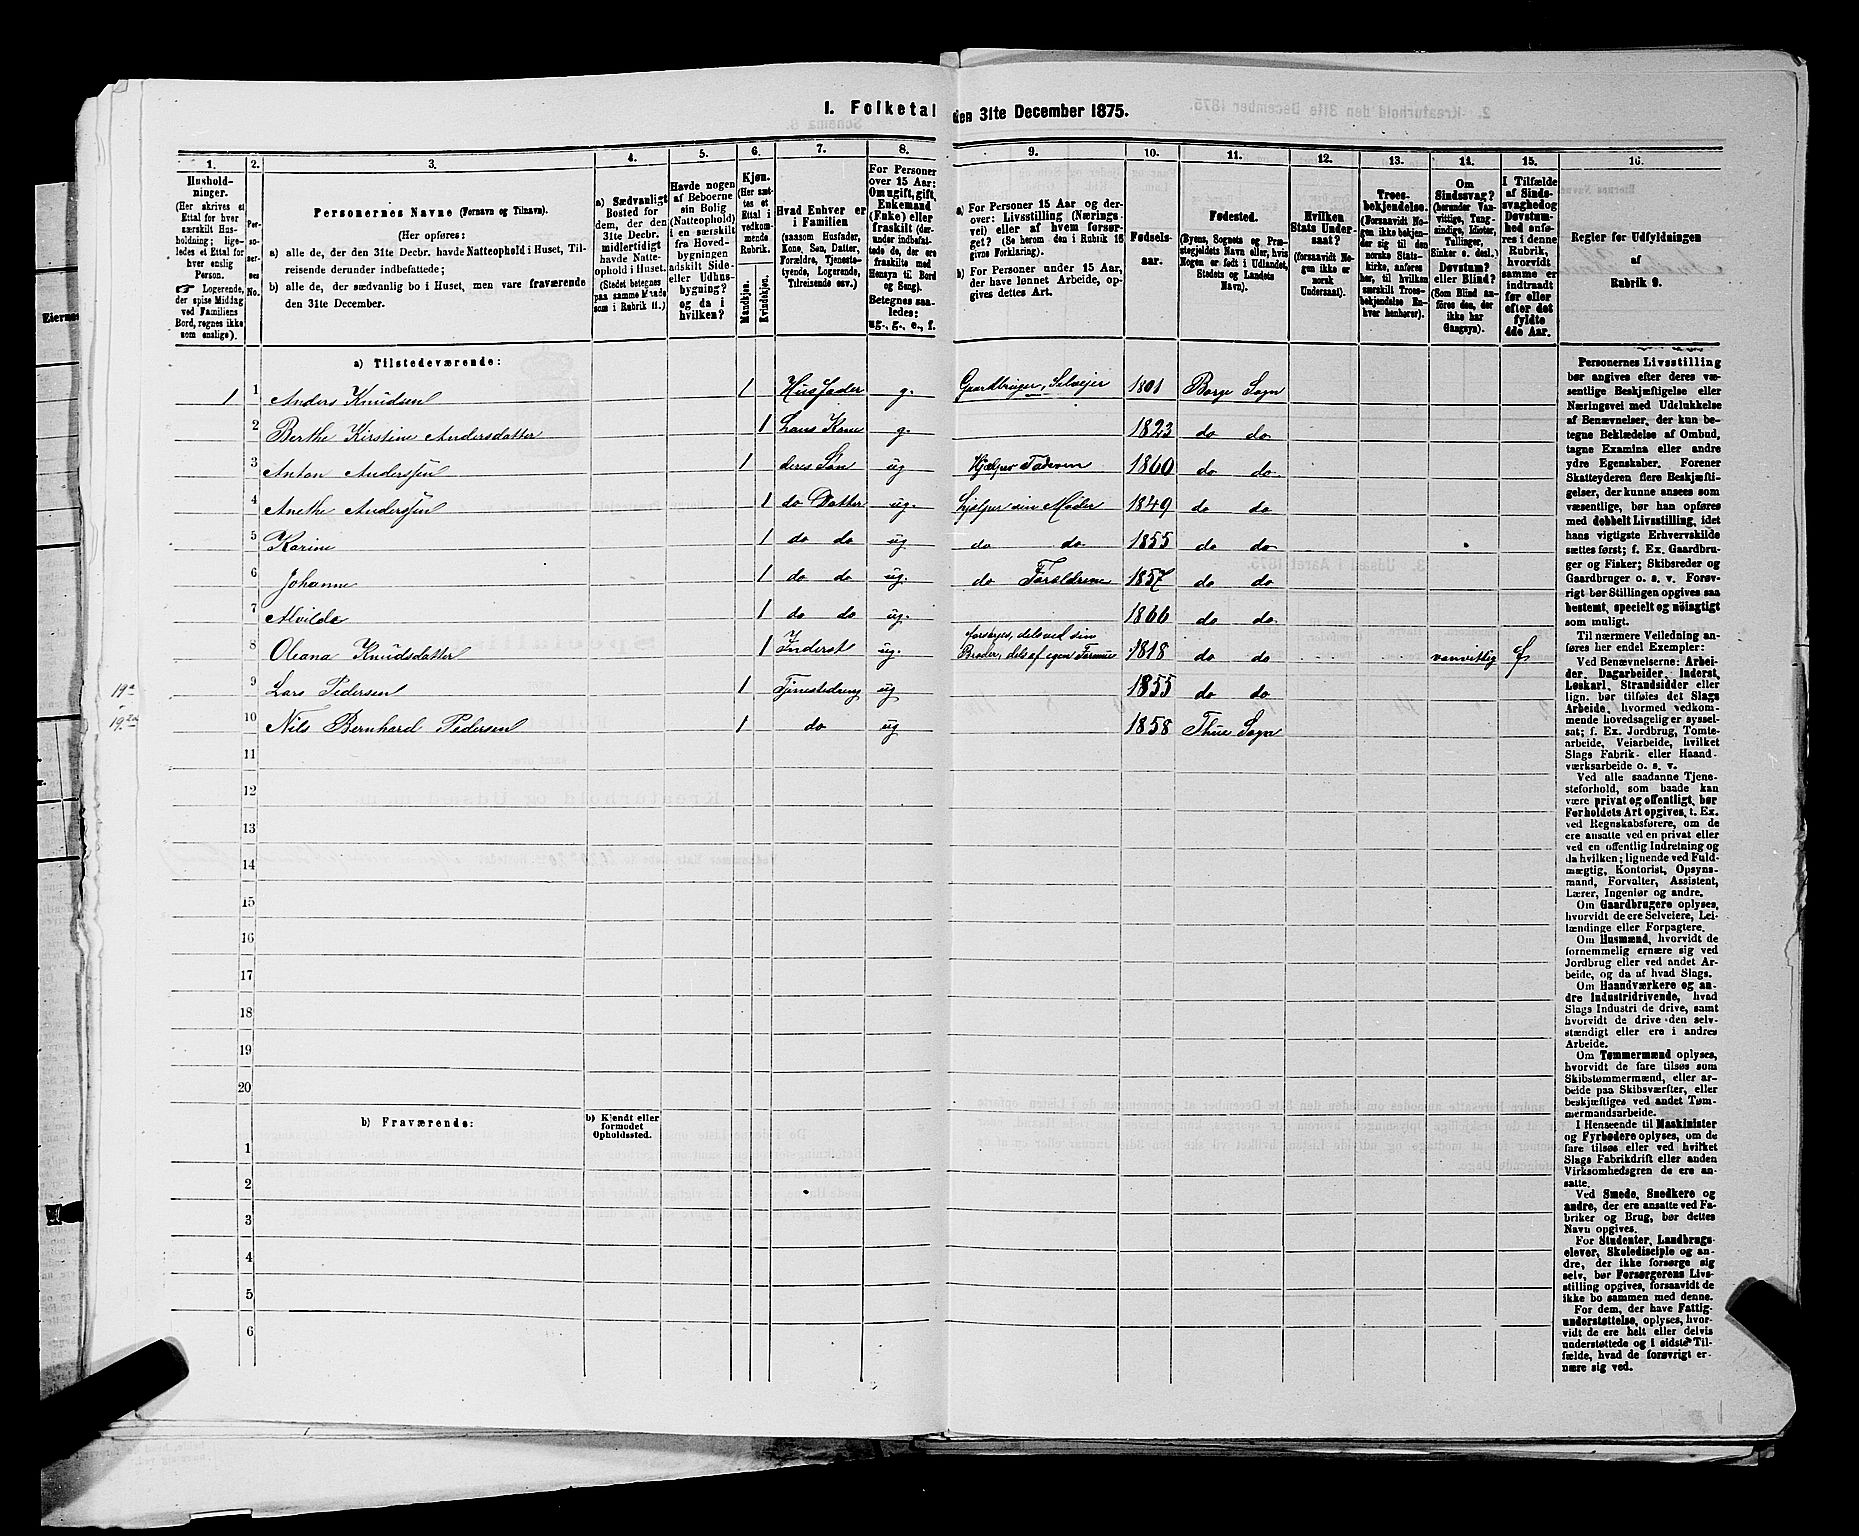 I. Folketal den 31te December 1875.
1.
Hushold-
ninger.
(Her skrives et
Ettal for hver
særskilt Hus-
holdning; lige-
ledes et Ettal for
hver enslig
Person.
Logerende,
der spise Middag
ved Familiens
Bord, regnes ikke
som enslige).
2.
Per-
so-
ner-
nes
No.
3.
Personernes Navne (Fornavn og Tilnavn).
(Her opføres:
a) alle de, der den 31te Decbr. havde Natteophold i Huset, Til-
reisende derunder indbefattede;
b) alle de, der sædvanlig bo i Huset, men vare fraværende
den 31te December.
4.
a) Sædvanligt
Bosted for
dem, der den
31te Decbr.
midlertidigt
havde Natte-
ophold i Huset.
(Stedet betegnes
paa samme Maade
som i Rubrik 11.)
5.
Havde nogen
af Beboerne
sin Bolig
(Natteophold)
i en særskilt
fra Hoved-
bygningen
adskilt Side-
eller Udhus-
bygning?
og da i
hvilken?
6.
Kjøn.
(Her sæt-
tes et
Ettal i
vedkom-
mende
Rubrik.
Mandkjøn.
Kvindekjøn.
7.
Hvad Enhver er
i Familien
(saasom Husfader,
Kone, Søn, Datter,
Forældre, Tjeneste-
tyende, Logerende,
Tilreisende osv.)
8.
For Personer
over 15 Aar:
Om ugift, gift,
Enkemand
(Enke) eller
fraskilt (der-
under indbefat-
tede de, der ere
fraskilte med
Hensyn til Bord
og Seng).
Betegnes saa-
ledes:
ug., g., e., f.
9.
a) For Personer 15 Aar og der-
over: Livsstilling (Nærings-
vei) eller af hvem forsør-
get? (Se herom den i Rubrik 16
givne Forklaring).
b) For Personer under 15 Aar,
der have lønnet Arbeide, op-
gives dettes Art.
10.
Fødsels-
aar.
11.
Fødested.
(Byens, Sognets og Præ-
stegjeldets Navn eller, hvis
Nogen er født i Udlandet,
Stedets og Landets
Navn).
12.
Hvilken
Stats Under-
saat?
(forsaavidt No-
gen ikke er
norsk
Undersaat).
13.
Troes-
bekjendelse.
(Forsaavidt No-
gen ikke bekjen-
der sig til den
norske Stats-
kirke, anføres
her, til hvilken
særskilt Troes-
bekjendelse En-
hver henhører).
14.
Om
Sindssvag?
(herunder Van-
vittige, Tung-
sindige, Idioter,
Tullinger,
Sinker o. desl.).
Døvstum?
eller Blind?
(Som Blind an-
føres den, der
ikke har
Gangsyn).
15.
I Tilfælde
af Sinds-
svaghed og
Døvstum-
hed anfø-
res i denne
Rubrik,
hvorvidt
samme er
indtraadt
før eller
efter det
fyldte
4de Aar.
16.
Regler for Udfyldningen
af
Rubrik 9.
a) Tilstedeværende:
1 1 Anders Knudsen 1 Husfader g. Gaardbruger, Selvejer 1801 Borge Sogn
2 Berthe Kirstine Andersdatter 1 hans Kone g. 1823 do do
3 Anton Anderssen 1 deres Søn ug Hjælper Faderen 1860 do do
4 Anethe Anderssen 1 do Datter ug. hjælper sin Moder 1849 do do
5 Karine 1 do do ug do do 1855 do do
6 Johanne 1 do do ug. do Forældrene 1857 do do
7 Alvilde 1 do do ug. 1866 do do
8 Oleana Knudsdatter 1 Inderst ug. forsørges, dels ved sin
Broder, dels af egen Formue 1818 do do vanvittig f
19a 9 Lars Pedersen 1 Tjenestedreng ug 1855 do do
10 Nils Bernhard Pedersen 1 do ug 1858 Thue Sogn
11
12
13
14
15
16
17
18
19
20
b) Fraværende:
b) Kjendt eller
formodet
Opholdssted.
1
2
3
4
5
6
Personernes Livsstilling
bør angives efter deres væ-
sentlige Beskjæftigelse eller
Næringsvei med Udelukkelse
af Benævnelser, der kun be-
tegne Beklædelse af Ombud,
tagne Examina eller andre
ydre Egenskaber. Forener
Skatteyderen flere Beskjæfti-
gelser, der kunne ansees som
væsentlige, bør han opføres
med dobbelt Livsstilling, idet
hans vigtigste Erhvervskilde
sættes først; f. Ex. Gaardbru-
ger og Fisker; Skibsreder og
Gaardbruger o. s. v. Forøv-
rigt bør Stillingen opgives saa
bestemt, specielt og nøiagtigt
som muligt.
Til nærmere Veiledning an-
føres her endel Exempler:
Ved Benævnelserne: Arbei-
der, Dagarbeider, Inderst,
Løskarl, Strandsidder eller
lign. bør tilføies det Slags
Arbeide, hvormed vedkom-
mende hovedsagelig er syssel-
sat; f. Ex. Jordbrug, Tomte-
arbeide, Veiarbeide, hvilket
Slags Fabrik- eller Haand-
værksarbeide o. s. v.
Ved alle saadanne Tjen-
steforhold, som baade kan
være privat og offentligt, bør
Forholdets Art opgives, t. Ex.
ved Regnskabsførere, om de
ere ansatte ved en privat eller
ved en offentlig Indretning og
da hvilken; lignende ved Fuld-
mægtig, Kontorist, Opsyns-
mand, Forvalter, Assistent,
Lærer, Ingeniør og andre.
Om Gaardbrugere oplyses,
hvorvidt de ere Selveiere, Lei-
lændinge eller Forpagtere.
Om Husmænd, hvorvidt de
fornemmelig ernære sig ved
Jordbrug eller ved andet Ar-
beide, og da af hvad Slags.
Om Haandværkere og an-
dre Industridrivende, hvad
Slags Industri de drive, samt
hvorvidt de drive den selv-
stændigt eller ere i andres
Arbeide.
Om Tømmermænd oplyses,
hvorvidt de fare tilsøs som
Skibstømmermænd, eller ar-
beide paa Skibsværfter, eller
beskjæftiges ved andet Tøm-
mermandsarbeide.
I Henseende til Maskinister
og Fyrbødere oplyses, om de
fare tilsøs eller ved hvilket
Slags Fabrikdrift eller anden
Virksomhedsgren de ere an-
satte.
Ved Smede, Snedkere og
andre, der ere ansatte ved Fa-
briker og Brug, bør dettes
Navn opgives.
For Studenter, Landbrugs-
elever, Skoledisciple og an-
dre, der ikke forsørge sig
selv, bør Forsørgerens Livs-
stilling opgives, forsaavidt de
ikke bo sammen med denne.
For dem, der have Fattig-
understøttelse, oplyses, hvor-
vidt de ere helt eller delvis
understøttede og i sidste Til-
fælde, hvad de forøvrigt er-
nære sig ved.